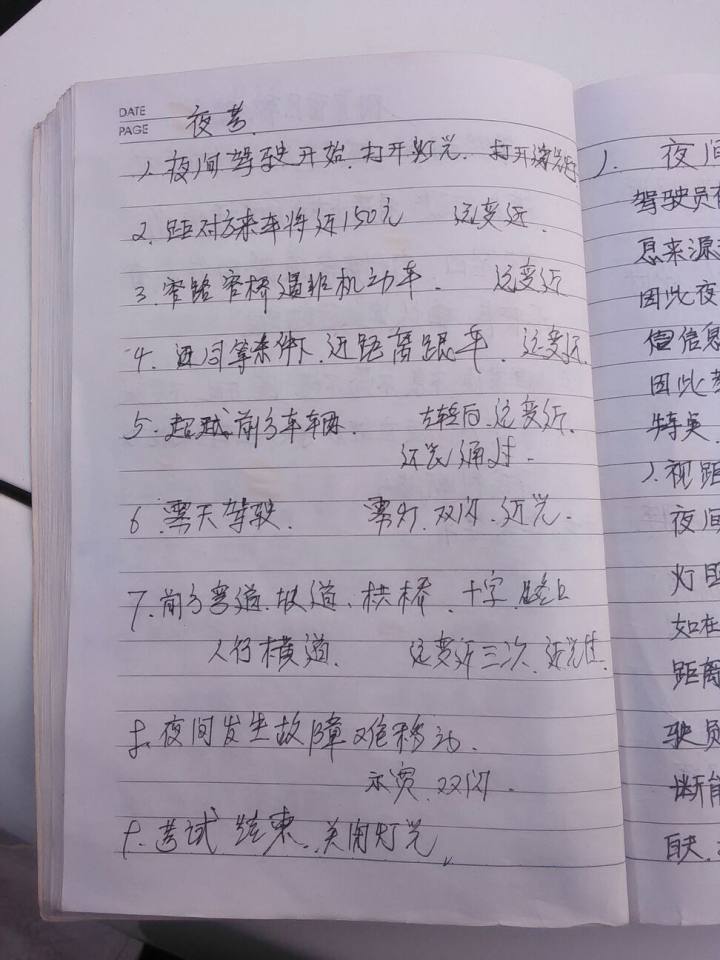 DATE
PAGE 夜考.
1. 夜间驾驶开始. 打开灯光. 打开
2. 距对方来车将近150元 远变近.
3. 窄路窄桥遇非机动车. 远变近
4. 同等条件下. 近距离跟车. 远变近.
5. 超越前方车辆. 左转向. 远变近.
远近光通过.
6. 雾天驾驶. 雾灯. 双闪. 近光.
7. 前方弯道. 坡道、拱桥. 十字. 路口
人行横道. 远变近三次. 近光
8. 夜间发生故障难移动.
示宽. 双闪.
9. 考试结束. 关闭灯光
1. 夜间
驾驶员
息来源
因此夜
信息
因此
特
1. 视距
夜间
灯
如在
距离
驶员
断能